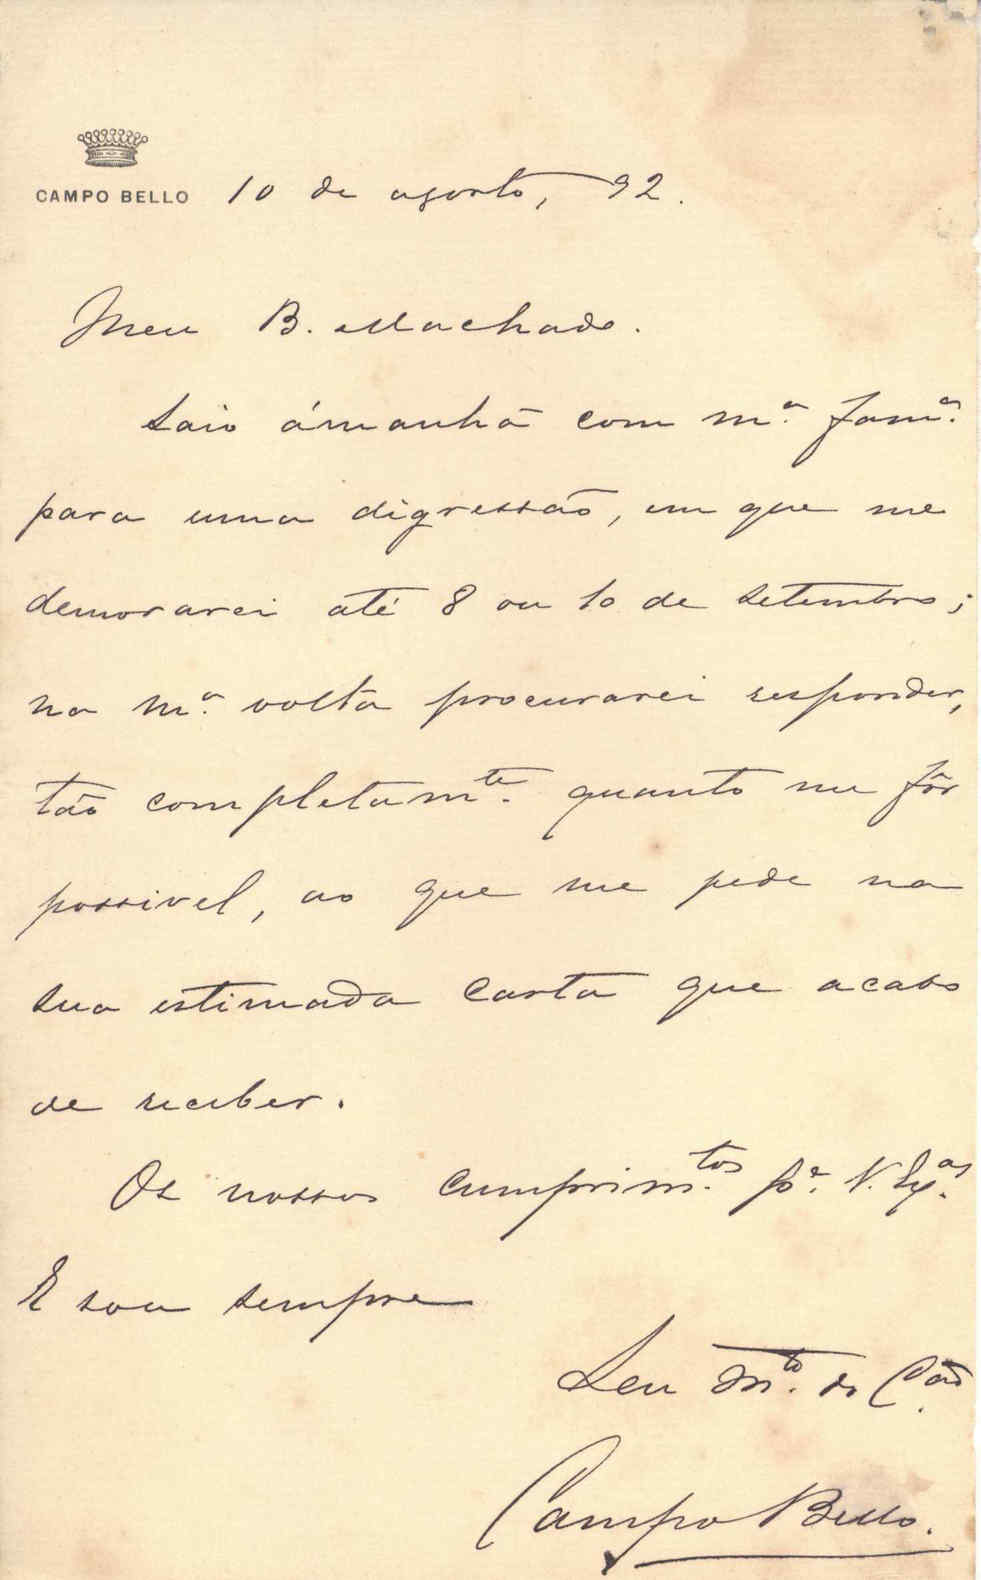 CAMPO BELLO 10 de agosto, 92.
Meu B. Machado.
Saio ámanhã com m.ª fam.ª
para uma digressão, em que me
demorarei até 8 ou 10 de setembro;
na m.ª volta procurarei responder,
tão completam.te quanto me fôr
possivel, ao que me pede na
sua estimada carta que acabo
de receber.
Os nossos cumprim.tos p.ª V. Ex.as
E sou sempre
Seu m.to do C.ão
Campo Bello.